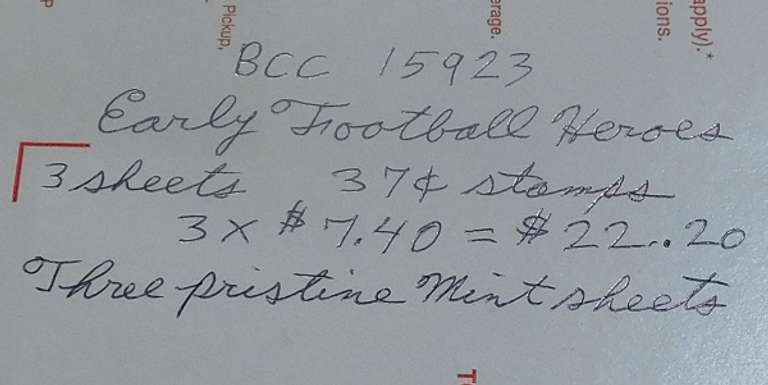 apply).*
ions.
erage.
Pickup,
P
BCC 15923
Early Football Heroes
3 sheets 37¢ stamps
3 x $7.40 = $22..20
Three pristine Mint sheets
T